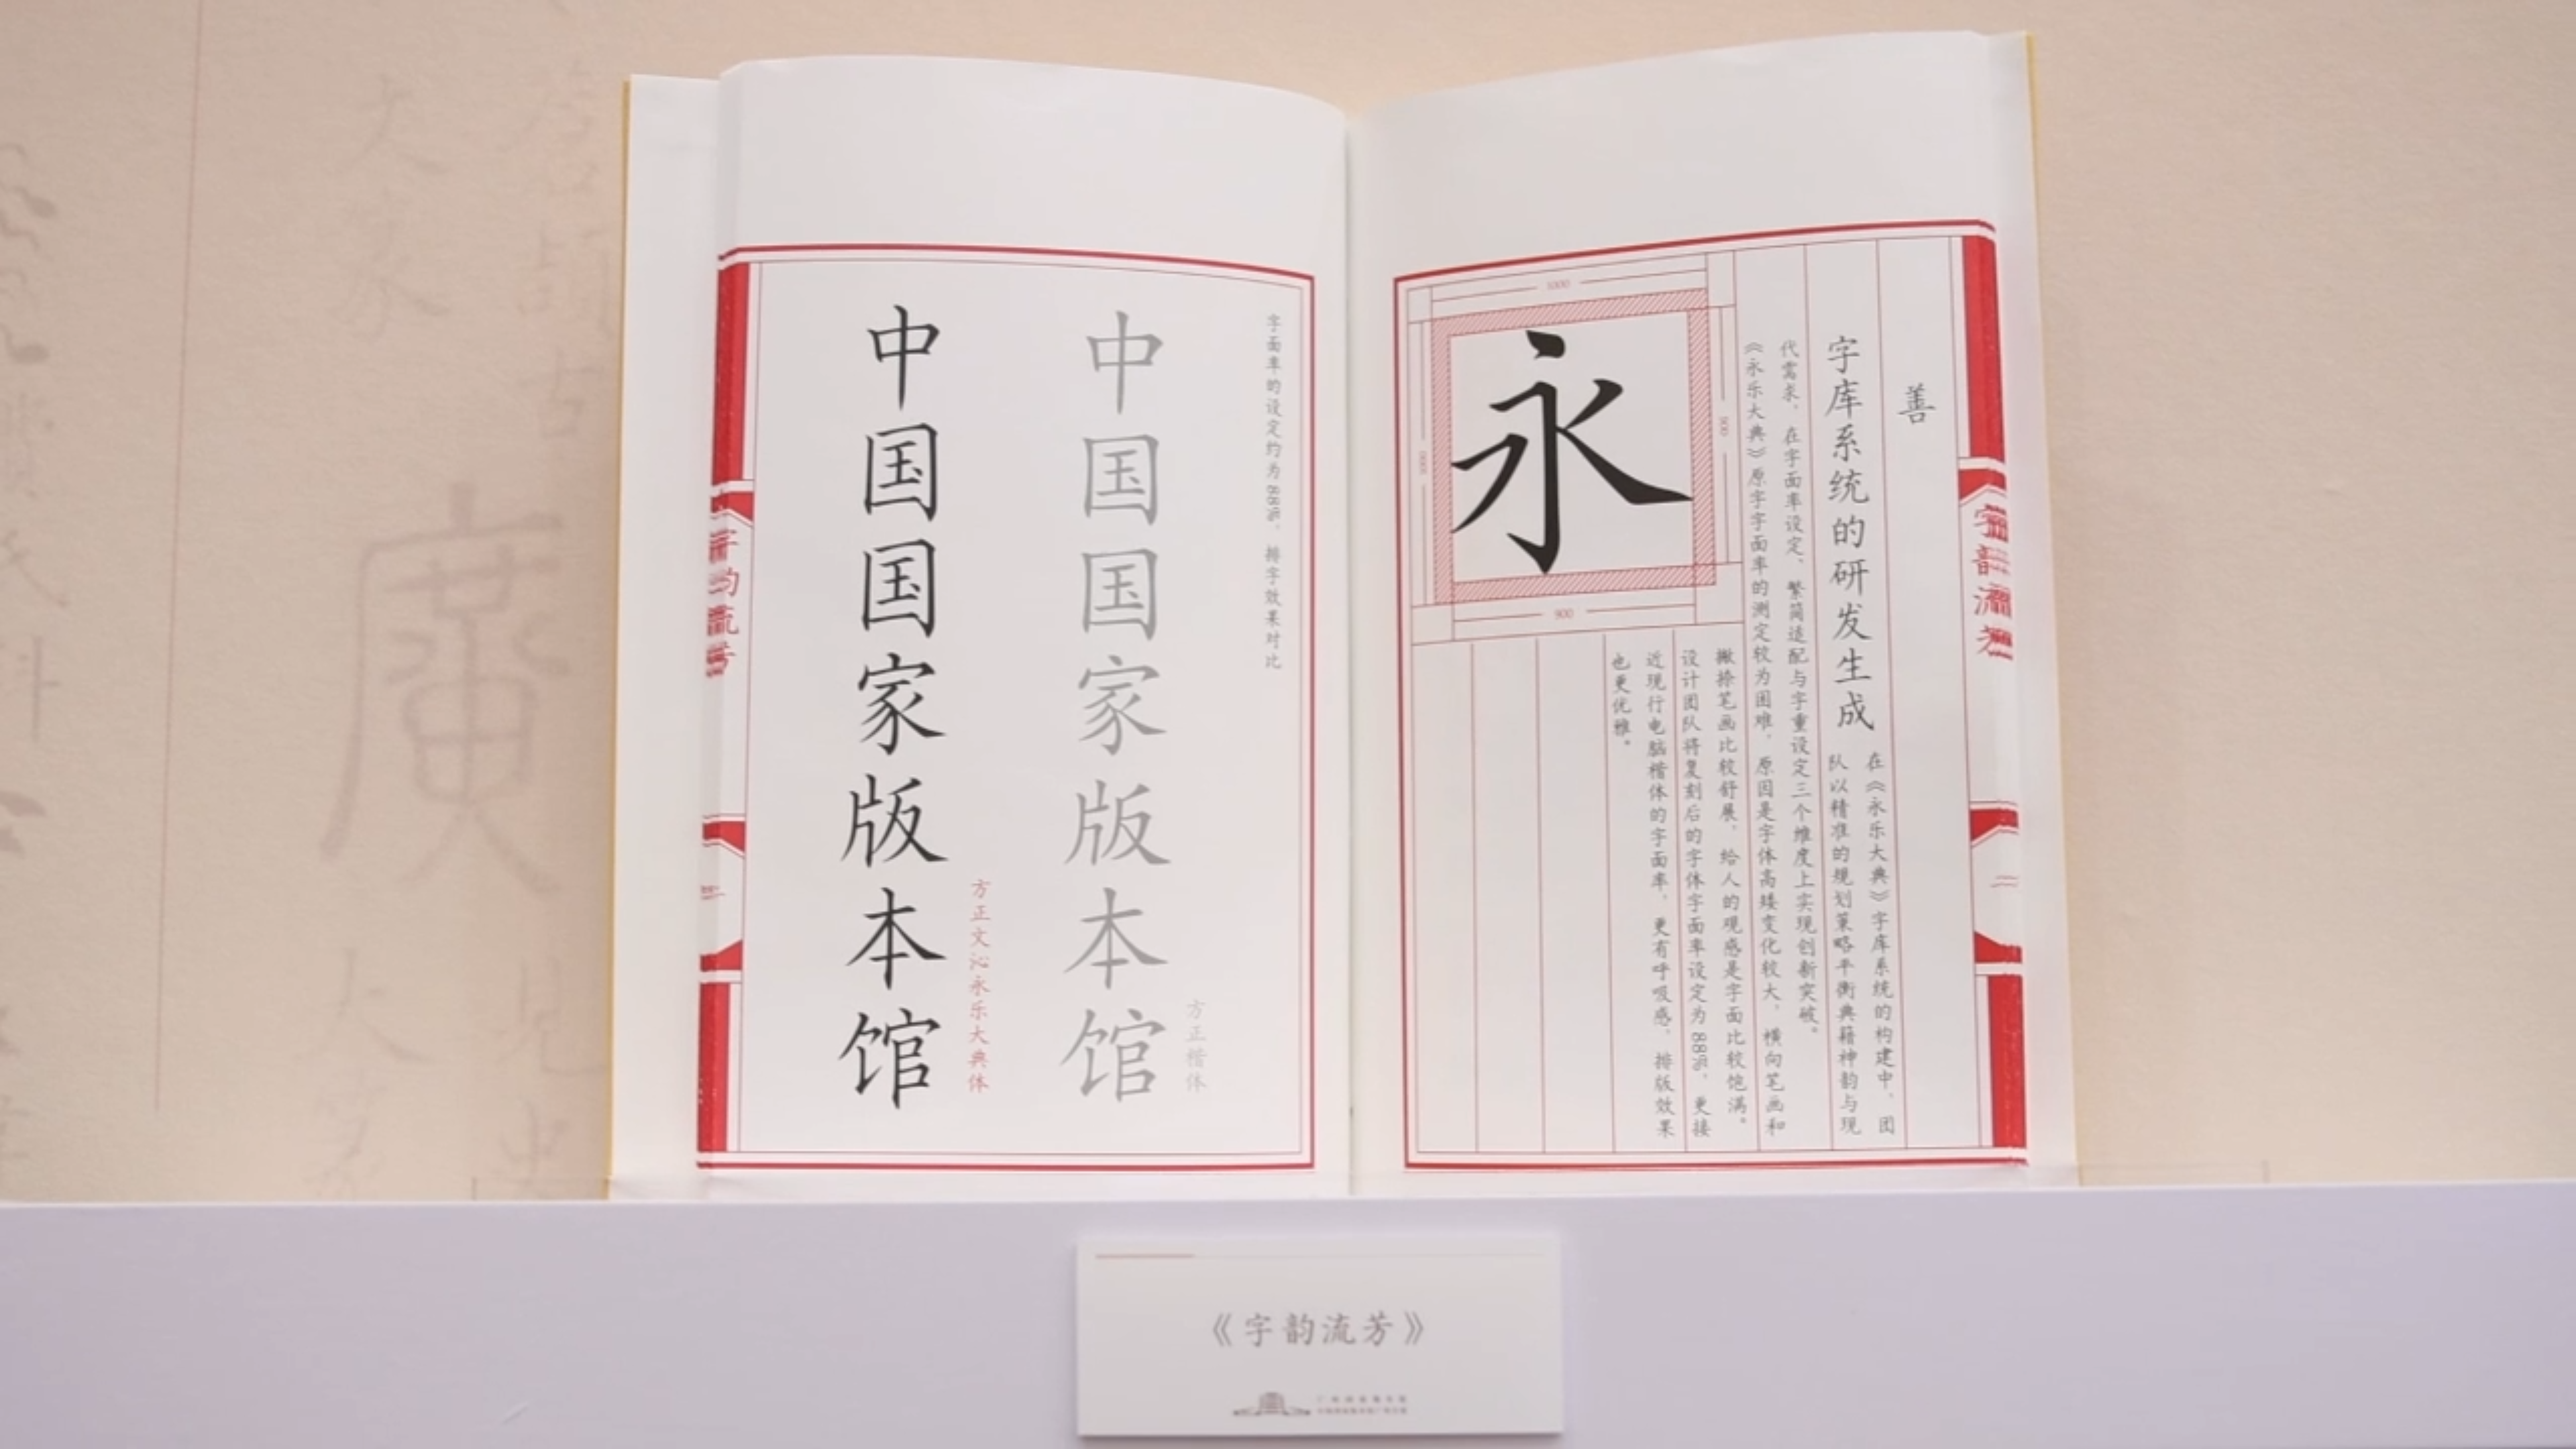 善
字库系统的研发生成
在《永乐大典》字库系统的构建中，团
队以精准的规划策略平衡典籍神韵与现
代需求，在字面率设定、繁简适配与字重设定三个维度上实现创新突破。
《永乐大典》原字字面率的测定较为困难，原因是字体高矮变化较大，横向笔画和
撇捺笔画比较舒展，给人的观感是字面比较饱满。
设计团队将复刻后的字体字面率设定为88%，更接
近现行电脑楷体的字面率，更有呼吸感，排版效果
也更优雅。
永
1000
900
900
字韵流芳
字面率的设定约为88%，排字效果对比
中国国家版本馆
方正楷体
中国国家版本馆
方正文沁永乐大典体
字韵流芳
廣
《字韵流芳》